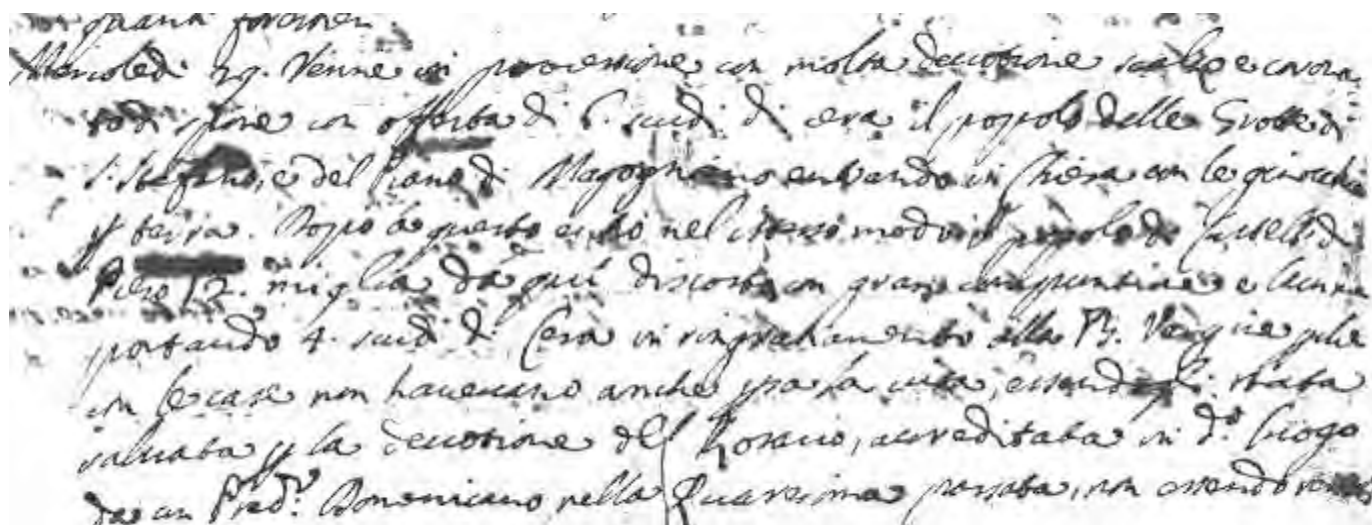 quanti forestieri
Mercoledì 29. Venne in processione con molta devotione scalzo e corona
to di spine con offerta di 6. scudi di cera il popolo delle Grotte di
S. Stefano, e del Piano di Magognano entrando in Chiesa con le ginocchia
p terra. Doppo a questo entrò nel istesso modo il popolo di Castello di
Piero 12. miglia da qui discosto con gran compuntione e
portando 4. scudi di Cera in ringratiamento alla B. Vergine pche
con le case non havevano anche psa la vita, essendogli stata
salvata p la devotione del Rosario, accreditata in d.º luogo
da un Pred.r Domenicano nella Quaresima passata, non essendo